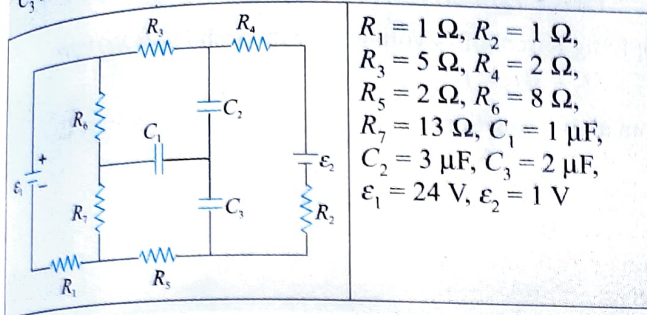 R₃ R₄
R₆ C₁ C₂
+
ε₁ − ε₂
R₇ C₃ R₂
R₁ R₅
R₁ = 1 Ω, R₂ = 1 Ω,
R₃ = 5 Ω, R₄ = 2 Ω,
R₅ = 2 Ω, R₆ = 8 Ω,
R₇ = 13 Ω, C₁ = 1 μF,
C₂ = 3 μF, C₃ = 2 μF,
ε₁ = 24 V, ε₂ = 1 V